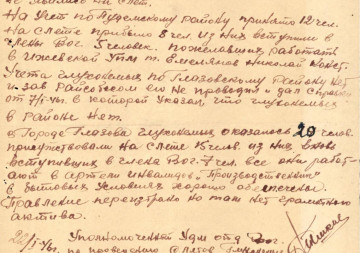 на учет по Пудемскому району принято 12 чел.
На слете прибыло 8 чел. из них вступили в
члены Вог. 5 человек. пожелавших работать
в Ижевской Упм т. Емельянов Николай
Учета глухонемых по Глазовскому Району нет
и зав Райсобесом его не проводил и дал справ
от 7/I-41. в которой указал, что глухонемых
в районе нет.
в Городе Глазова глухонемых оказалось 20 челов.
присутствовали на слете 15 челов. из них вновь
вступивших в члена Вог-7 чел. все они работ-
ают в артели инвалидов "Производственник"
в бытовых условиях хорошо обеспечены.
Правление переизбрано но там нет грамотного
актива.
22/I-41. Уполномоченный Удм отд Вог.
по проведению слетов